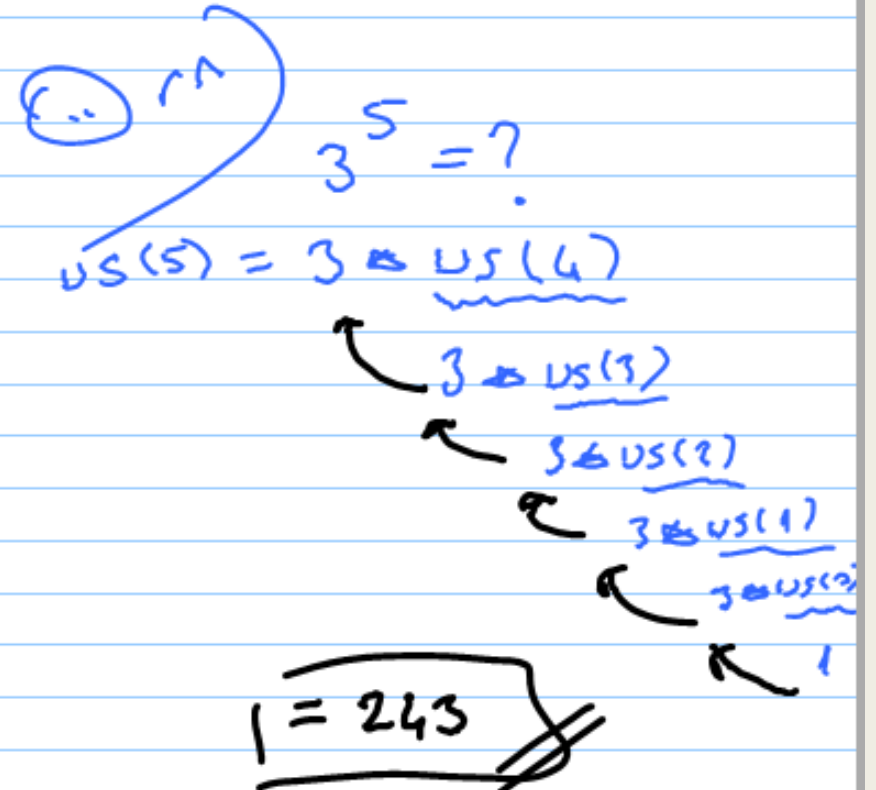 3^5 = ?
us(5) = 3 * us(4)
3 * us(3)
3 * us(2)
3 * us(1)
3 * us(0)
1
= 243